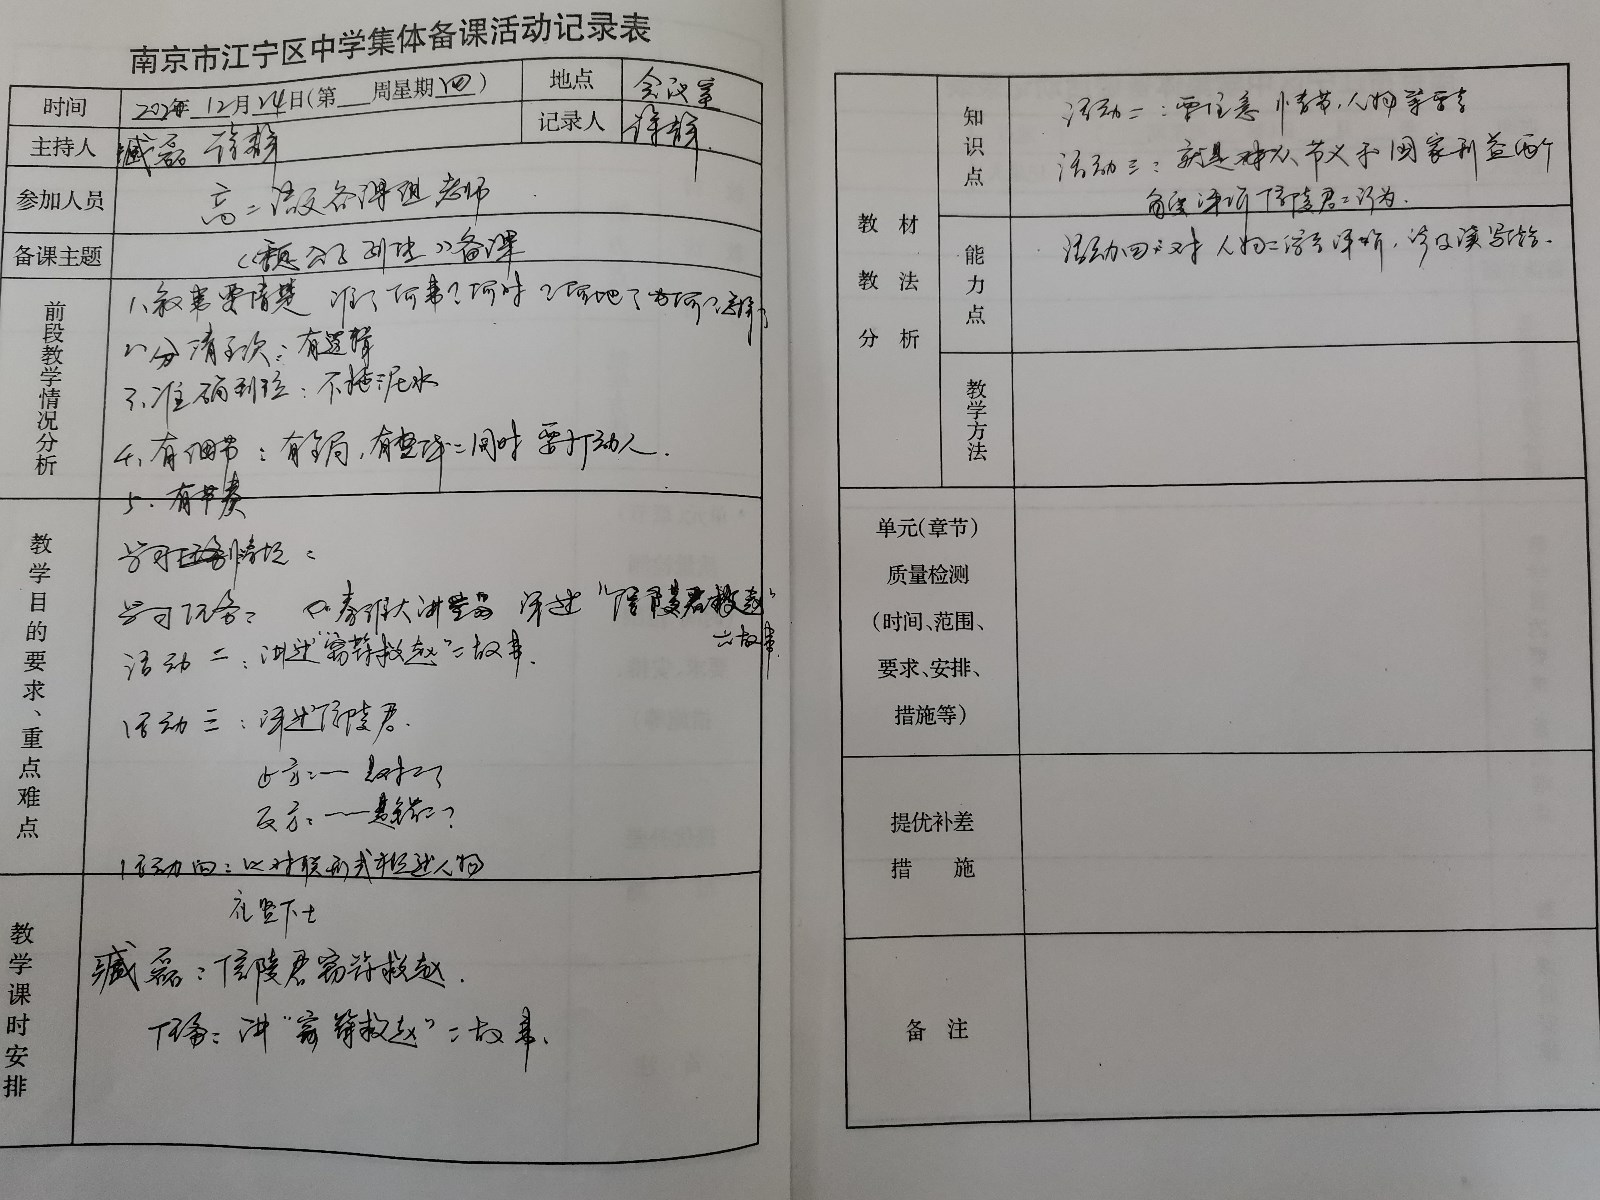 南京市江宁区中学集体备课活动记录表
时间 12月24日(第 周星期四) 地点 会议室
主持人 臧磊 徐静 记录人 徐静
参加人员 高二语文备课组老师
备课主题 《魏公子列传》备课
前段教学情况分析
1、叙事要清楚 谁？何事？何时？何地？为何？
2、分清主次：有逻辑
3、准确到位：不拖泥水
4、有细节：有全局，有 同时要打动人.
5、有节奏
教学目的要求、重点难点
学习任务情境：
学习任务： 大讲堂 评述“信陵君救赵”
故事.
活动二：讲述“窃符救赵”二故事.
活动三：评述信陵君.
正方：——
反方：—— ？
活动四：以对联形式 人物
礼贤下士
教学课时安排
臧磊：信陵君窃符救赵.
任务：讲“窃符救赵”二故事.
教材教法分析
知识点
活动二：要注意情节,人物等要素
活动三：就是 从节义和国家利益两个
角度评析信陵君二行为.
能力点
活动四：对人物二 评价,
教学方法
单元(章节)
质量检测
(时间、范围、
要求、安排、
措施等)
提优补差
措 施
备 注